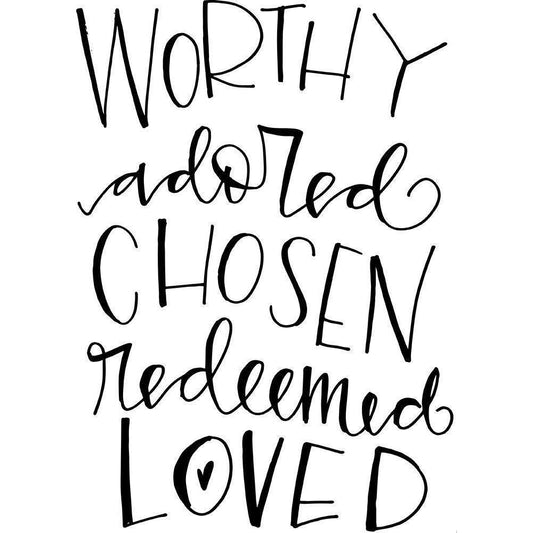 WORTHY
adored
CHOSEN
redeemed
LOVED